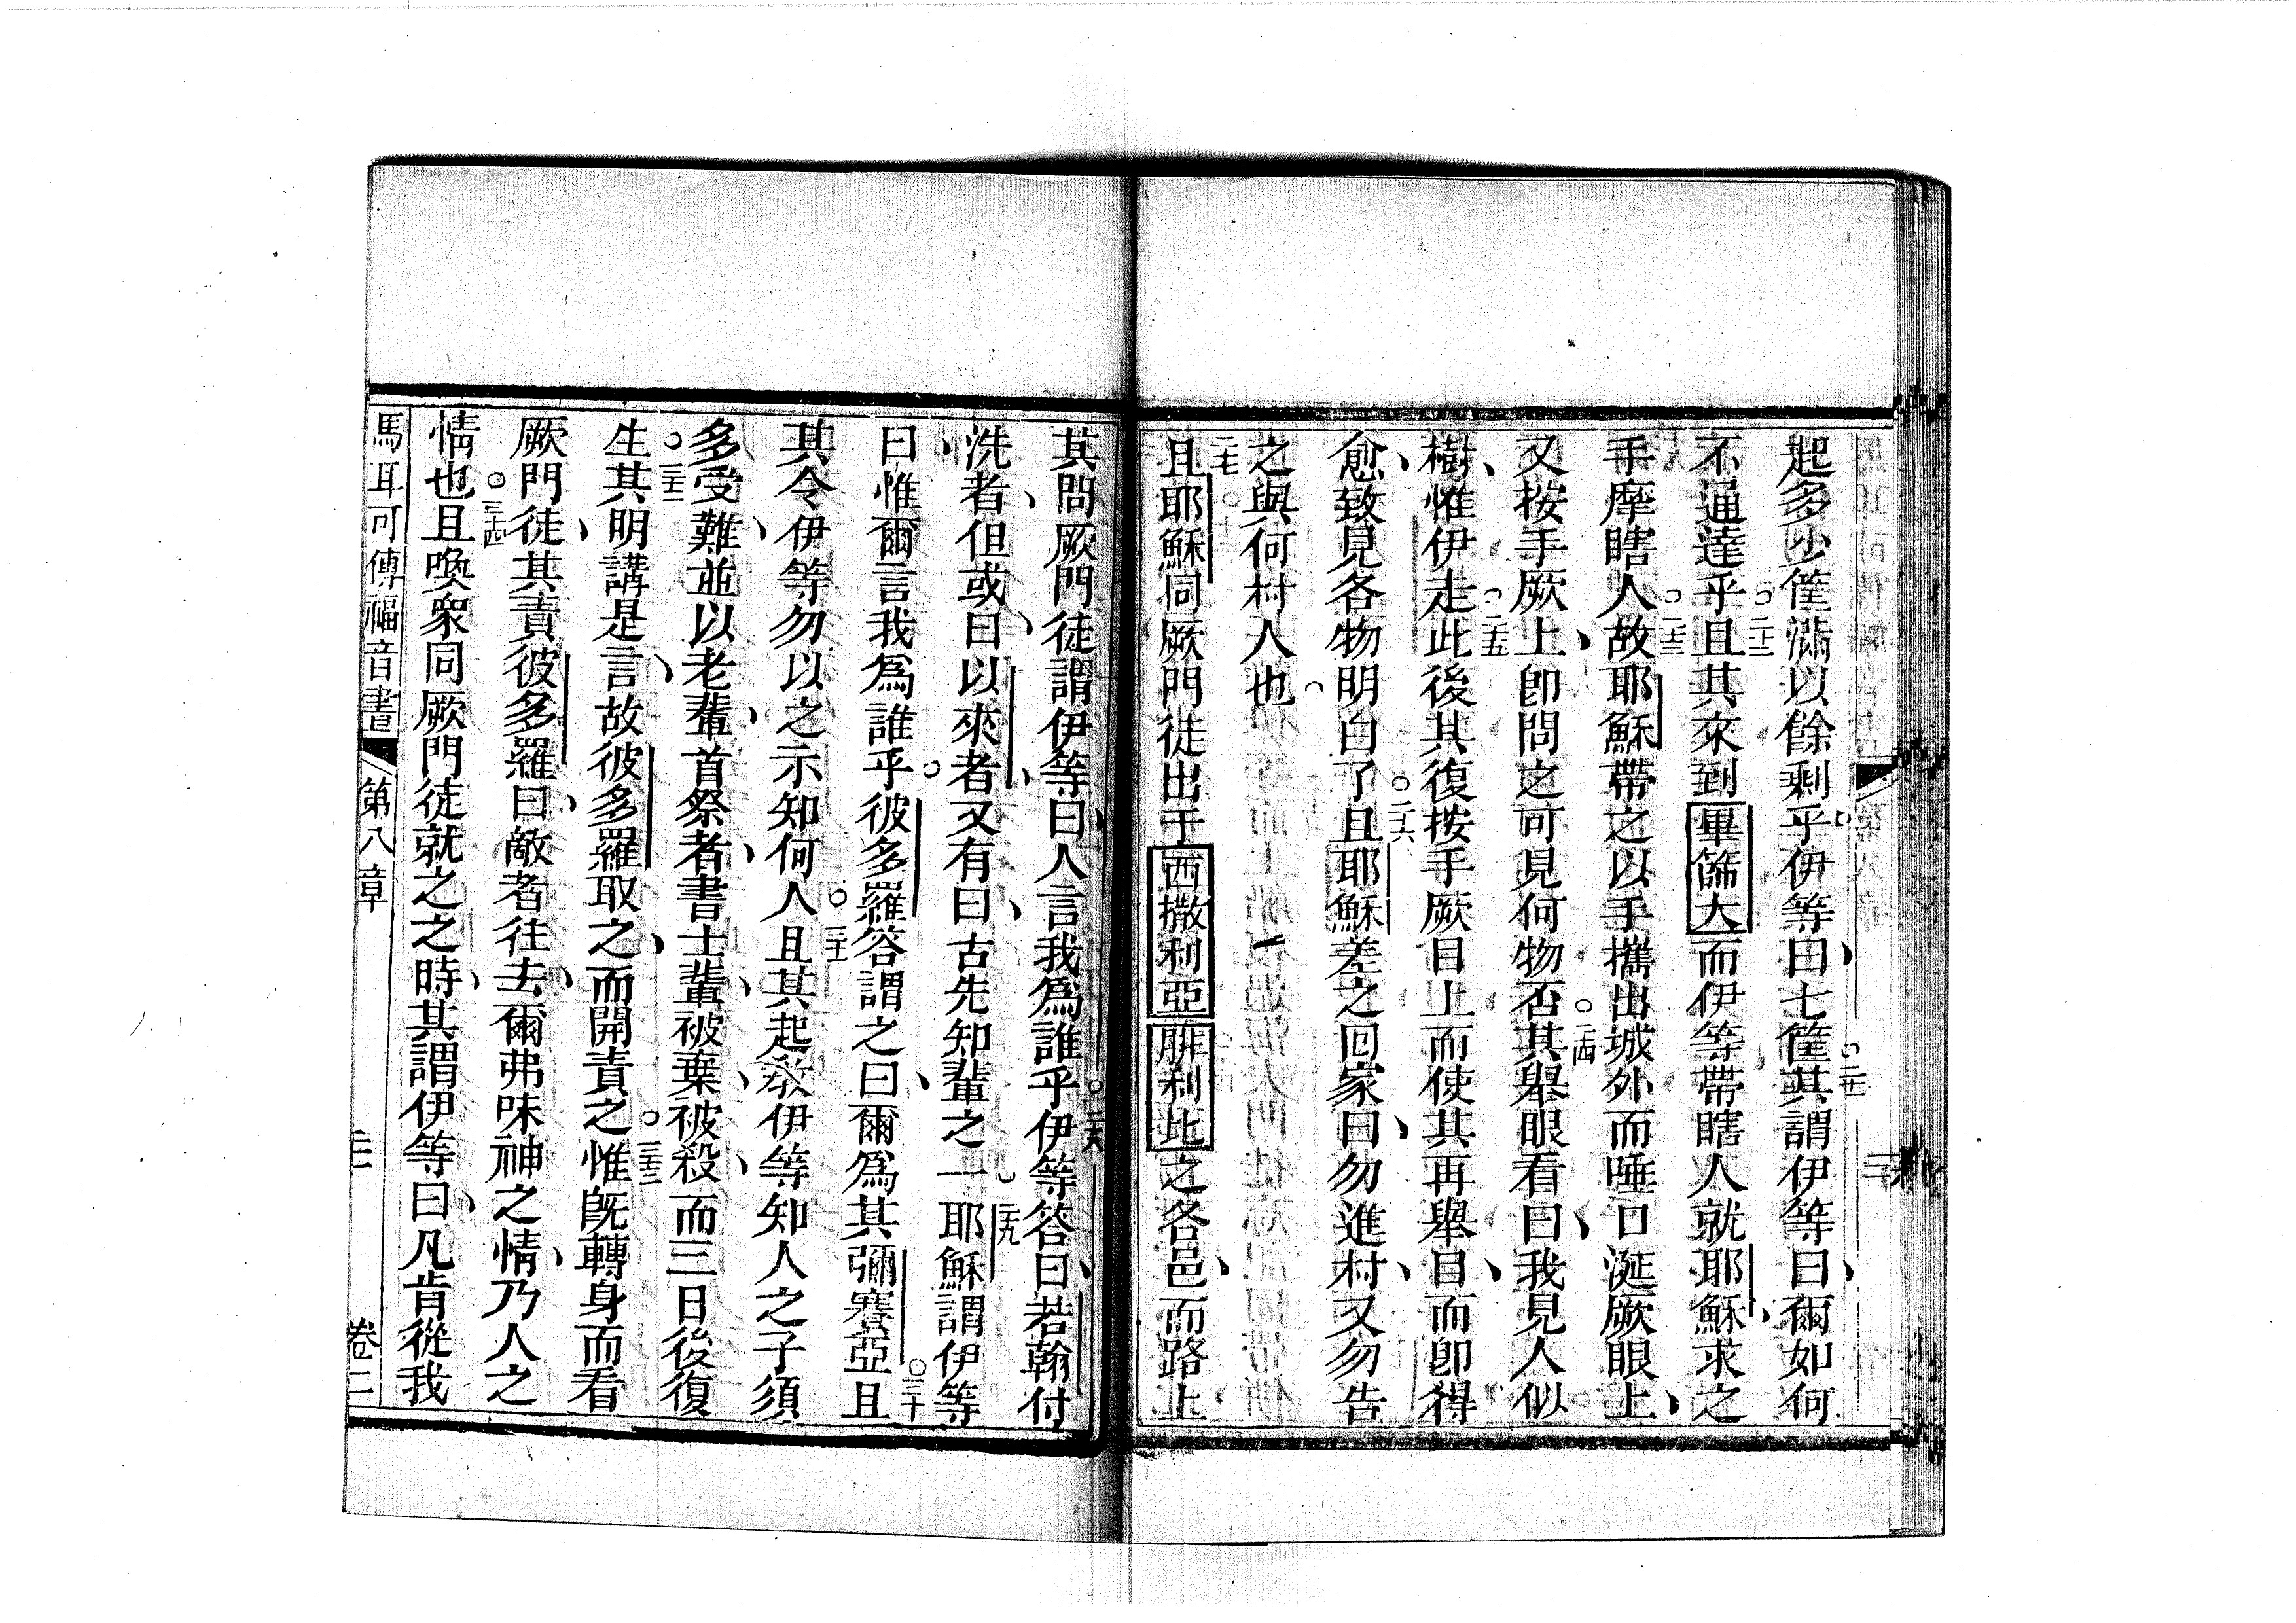 起多少筐滿以餘剩乎伊等曰七筐其謂伊等曰爾如何
二十一
不通達乎且其來到畢篩大而伊等帶瞎人就耶穌求之
二十二
手摩瞎人故耶穌帶之以手攜出城外而唾口涎厥眼上
二十三
又按手厥上卽問之可見何物否其舉眼看曰我見人似
二十四
樹惟伊走此後其復按手厥目上而使其再舉目而卽得
二十五
愈致見各物明白了且耶穌差之回家曰勿進村又勿告
二十六
之與何村人也
二十七
且耶穌同厥門徒出于西撒利亞腓利比之各邑而路上
其問厥門徒謂伊等曰人言我爲誰乎伊等答曰若翰付
二十八
洗者但或曰以來者又有曰古先知輩之一耶穌謂伊等
二十九
曰惟爾言我爲誰乎彼多羅答謂之曰爾爲其彌賽亞且
三十
其令伊等勿以之示知何人且其起教伊等知人之子須
三十一
多受難並以老輩首祭者書士輩被棄被殺而三日後復
三十二
生其明講是言故彼多羅取之而開責之惟旣轉身而看
三十三
厥門徒其責彼多羅曰敵者往去爾弗味神之情乃人之
情也且喚衆同厥門徒就之之時其謂伊等曰凡肯從我
三十四
馬耳可傳福音書 第八章 卷二